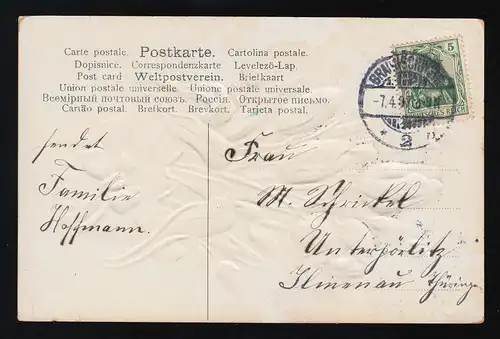 Carte postale. Postkarte. Cartolina postale.
Dopisnice. Correspondenzkarte. Levelező-Lap.
Post card Weltpostverein. Briefkaart
Union postale universelle Unione postale universale.
Всемірный почтовый союзъ. Россія. Открытое письмо.
Cartão postal. Brefkort. Brevkort. Tarjeta postal.
5
-7.4.
* 2
sendet
Familie
Hoffmann.
Frau
M. Schrickel
Unterpörlitz
Ilmenau